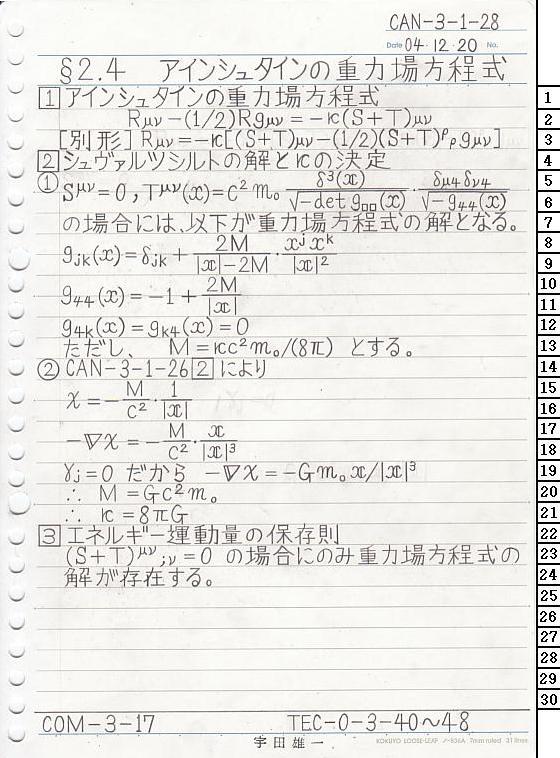 CAN-3-1-28
Date 04・12・20 No.
§2.4 アインシュタインの重力場方程式
1 アインシュタインの重力場方程式
Rμν−(1/2)Rgμν=−κ(S+T)μν
[別形] Rμν=−κ[(S+T)μν−(1/2)(S+T)^ρ_ρ gμν]
2 シュヴァルツシルトの解とκの決定
① S^μν=0, T^μν(x)=c²m₀ δ³(x)/√−det g□□(x) · δμ4δν4/√−g₄₄(x)
の場合には、以下が重力場方程式の解となる。
g_jk(x)=δ_jk+ 2M/(|x|−2M) · x^j x^k/|x|²
g₄₄(x)=−1+ 2M/|x|
g₄k(x)=gk₄(x)=0
ただし、 M=κc²m₀/(8π) とする。
② CAN-3-1-26 2 により
χ=− M/c² · 1/|x|
−∇χ=− M/c² · x/|x|³
γj=0 だから −∇χ=−Gm₀x/|x|³
∴ M=Gc²m₀
∴ κ=8πG
3 エネルギー運動量の保存則
(S+T)^μν;ν=0 の場合にのみ重力場方程式の
解が存在する。
COM-3-17 TEC-0-3-40〜48
宇田雄一
KOKUYO LOOSE-LEAF ノ-836A 7mm ruled 31 lines
1
2
3
4
5
6
7
8
9
10
11
12
13
14
15
16
17
18
19
20
21
22
23
24
25
26
27
28
29
30